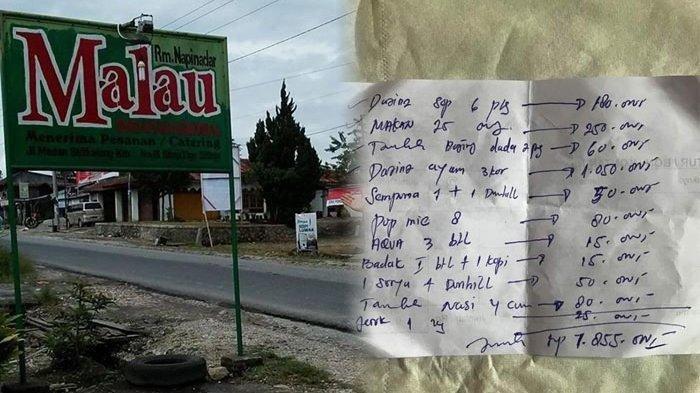 Rm. Napinadar
Malau
Menerima Pesanan / Catering
Jl Medan
Daging Sop 6 ptg → 180.000,-
MAKAN 25 org. → 250.000,-
Tambah Daging dada 2 ptg → 60.000,-
Daging ayam 3 kor → 1.050.000,-
Sempurna 1 + 1 Dunhill → 50.000,-
pop mie 8 → 80.000,-
AQUA 3 btl → 15.000,-
Badak 1 btl + 1 kopi → 15.000,-
1 Surya + Dunhill → 50.000,-
Tambah Nasi 4 → 80.000,-
Jeruk 1 kg 25.000,-
Jumlah Rp 1.855.000,-